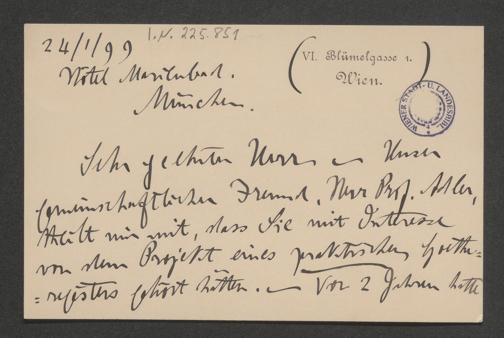 24/1/99
I.N. 225.851
VI. Blümelgasse 1.
Wien.
Hotel Marienbad.
München.
WIENER STADT- U. LANDESBIBL
Sehr geehrter Herr — Unser
gemeinschaftlicher Freund, Herr Prof. Adler,
theilt mir mit, dass Sie mit Interesse
von dem Projekt eines praktischen Goethe-
-registers gehört hätten. — Vor 2 Jahren hatte